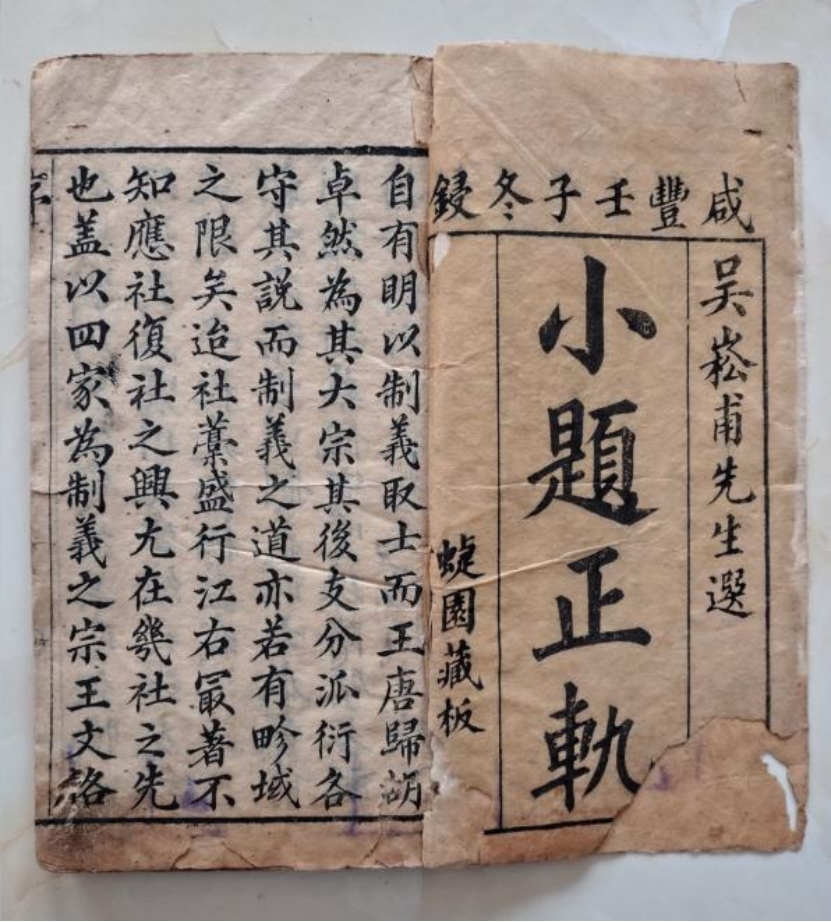 咸豐壬子冬鋟
吳崧甫先生選
小題正軌
蜨園藏板
自有明以制義取士而王唐歸胡
卓然為其大宗其後支分派衍各
守其說而制義之道亦若有畛域
之限矣迨社藁盛行江右冣著不
知應社復社之興尢在幾社之先
也盖以四家為制義之宗王文恪
序